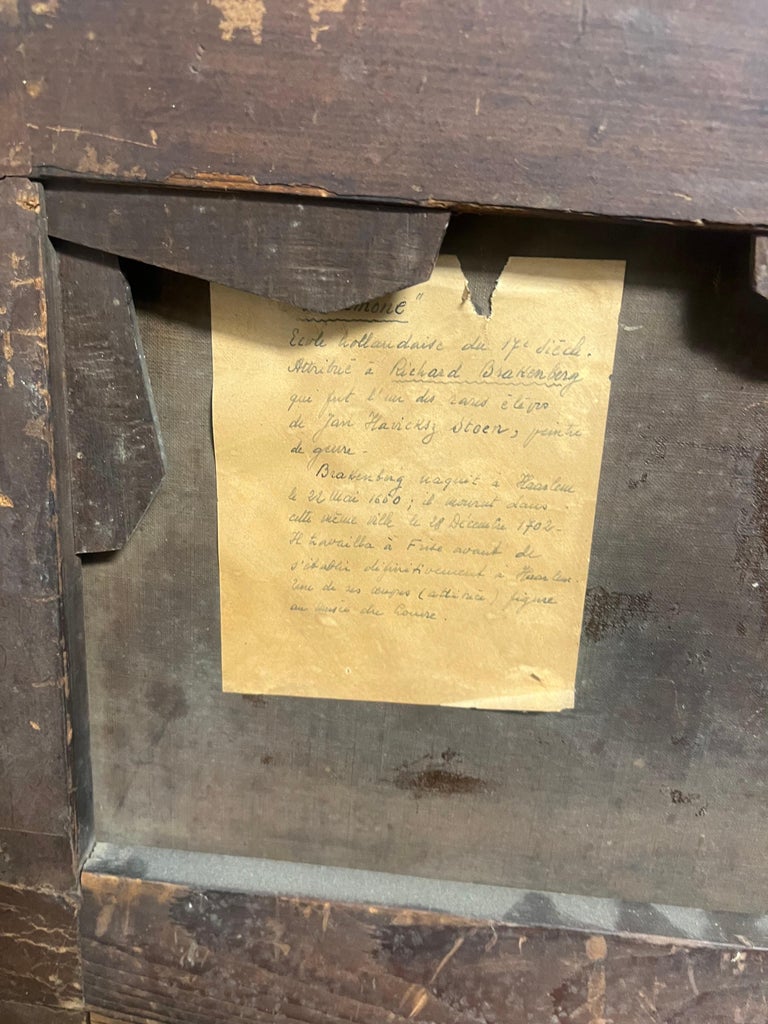 Ecole hollandaise du 17e Siècle.
Attribué à Richard Brakenberg
qui fut l'un des rares élèves
de Jan Havicksz Steen, peintre
de genre.
Brakenberg naquit à Haarlem
le 22 Mai 1660 ; il mourut dans
cette même ville le 28 Décembre 1702.
Il travailla à Frise avant de
s'établir définitivement à Haarlem.
Une de ses (attribuée) figure
au musée du Louvre.